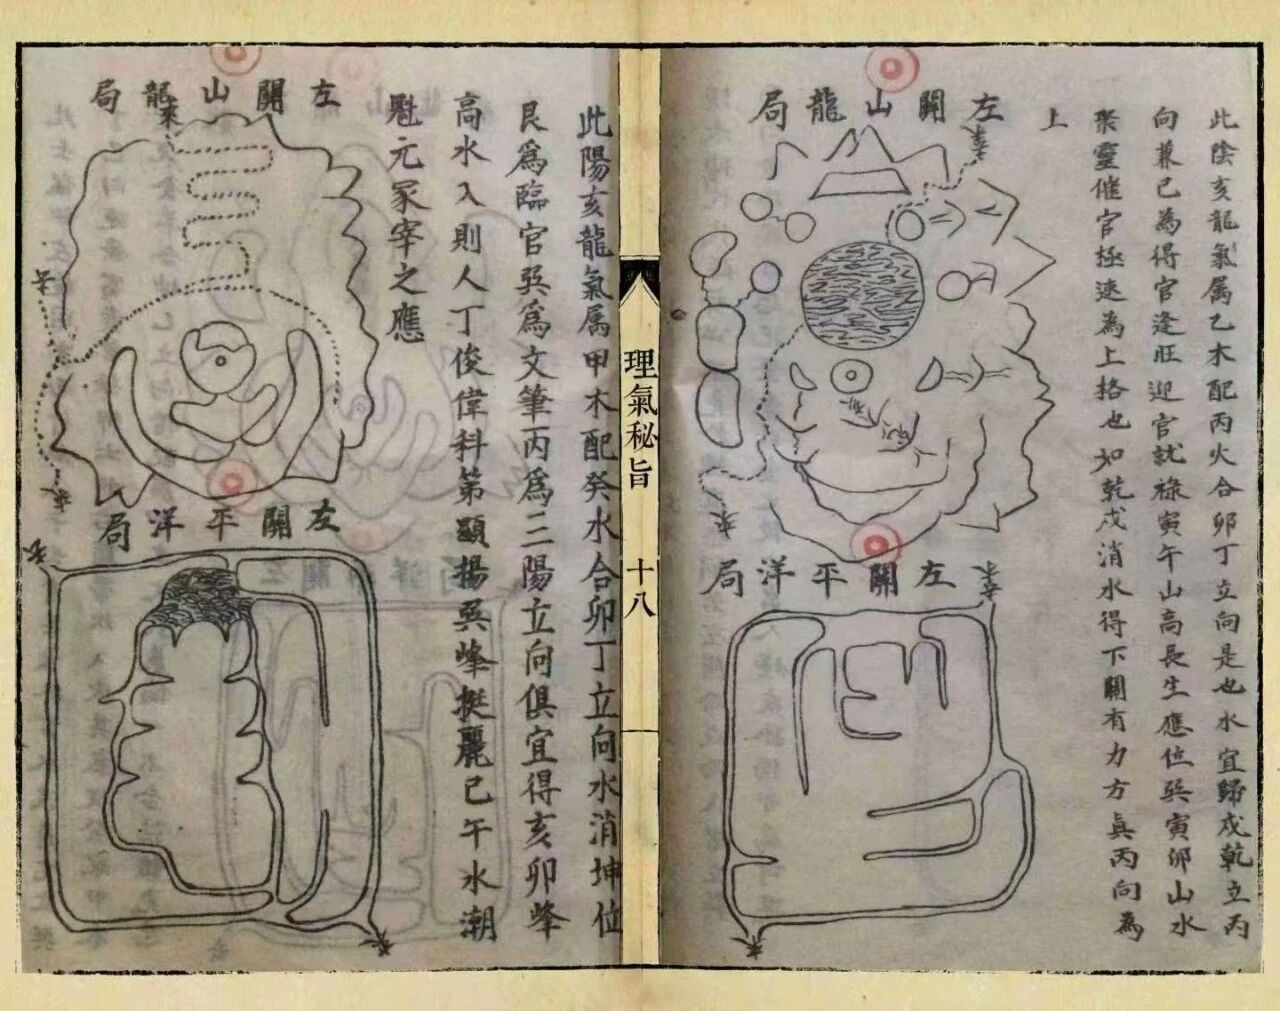 此陰亥龍氣属乙木配丙火合卯丁立向是也水宜歸戍乾立丙
向兼巳為得官逢旺迎官就祿寅午山高長生應位巽寅卯山水
聚靈催官極速為上格也如乾戍消水得下關有力方真丙向為
上
左關山龍局
左關平洋局
理氣秘旨
十八
此陽亥龍氣属甲木配癸水合卯丁立向水消坤位
艮爲臨官巽爲文筆丙爲三陽立向俱宜得亥卯峰
高水入則人丁俊偉科第顯揚巽峰挺麗巳午水潮
魁元冢宰之應
左關山龍局
來
左關平洋局
來
來
來
來